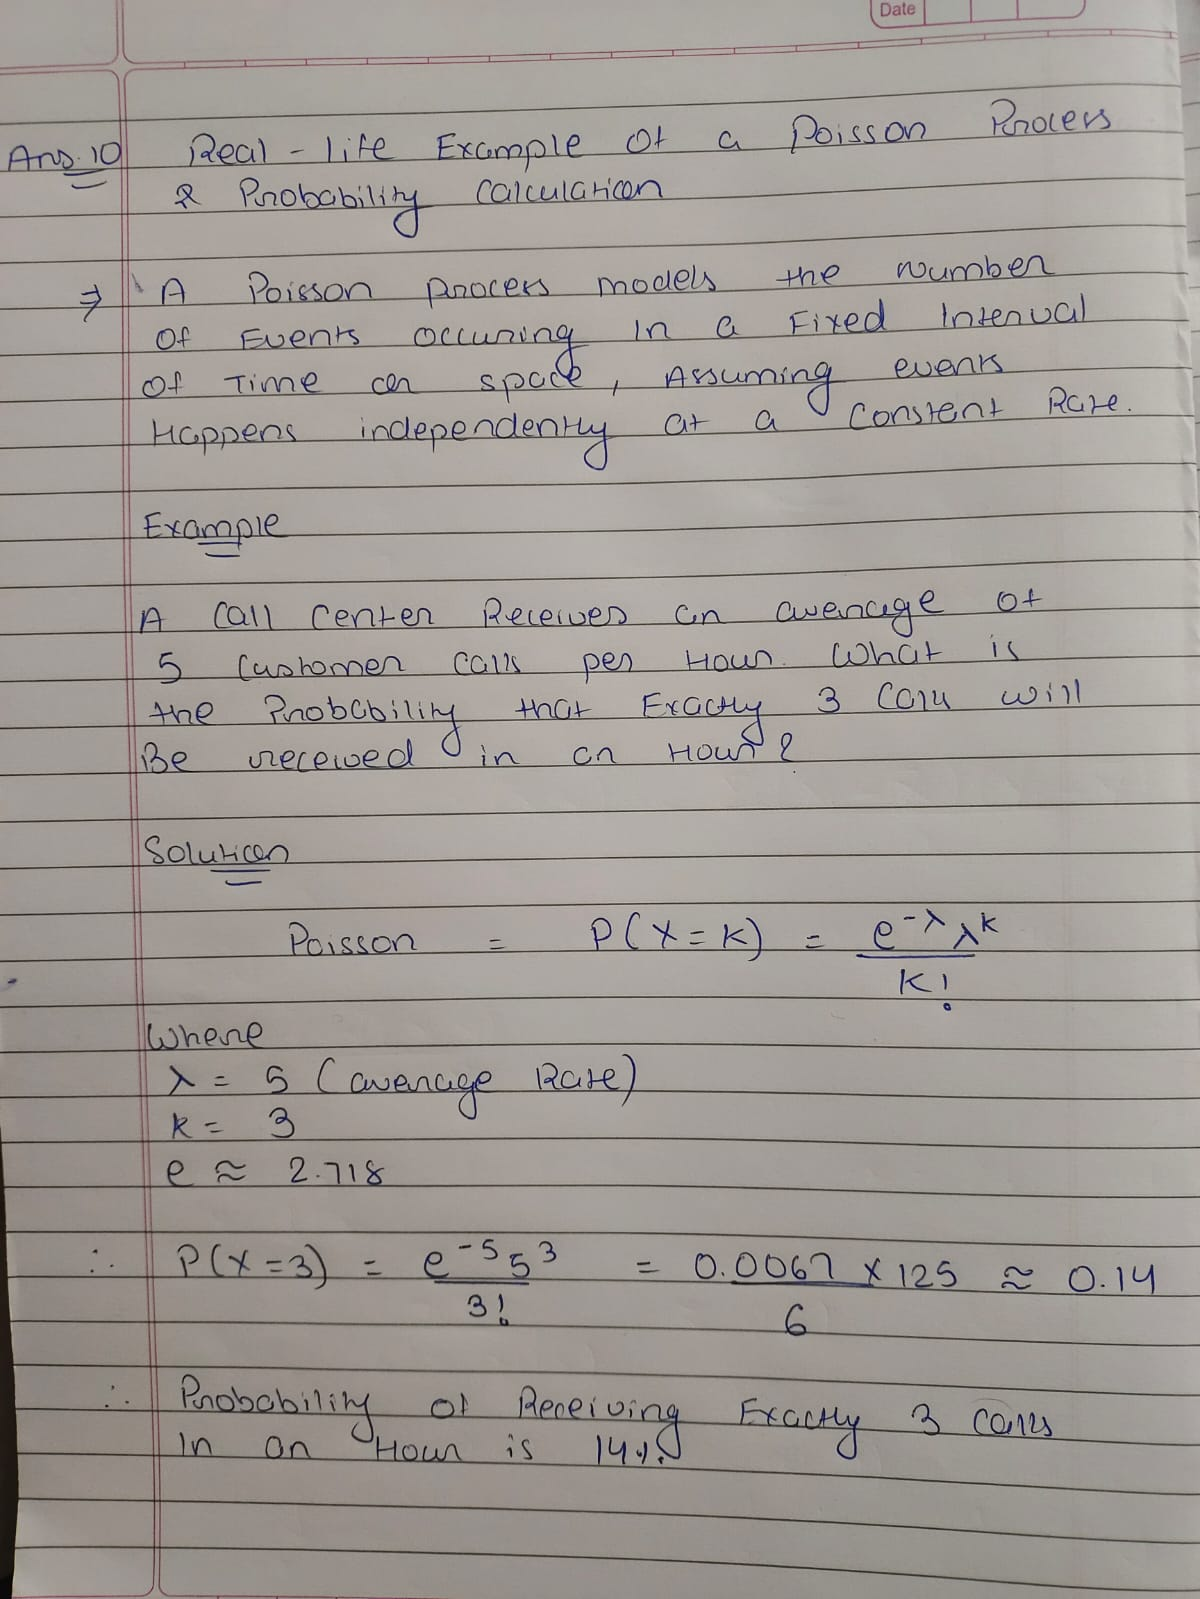 Date
Ans.10 Real - life Example of a Poisson Process
& Probability Calculation
⇒ A Poisson process models the number
of Events occuring in a Fixed Interval
of Time or space, Assuming events
Happens independently at a Constent Rate.
Example
A Call Center Receives an average of
5 Customer Calls per Hour. What is
the Probability that Exactly 3 Calls will
Be received in an Hour?
Solution
Poisson = P(X=K) = e^-λ λ^K / K!
Where
λ = 5 (average Rate)
k = 3
e ≈ 2.718
∴ P(X=3) = e^-5 5^3 / 3! = 0.0067 x 125 / 6 ≈ 0.14
∴ Probability of Receiving Exactly 3 Calls
In an Hour is 14%.